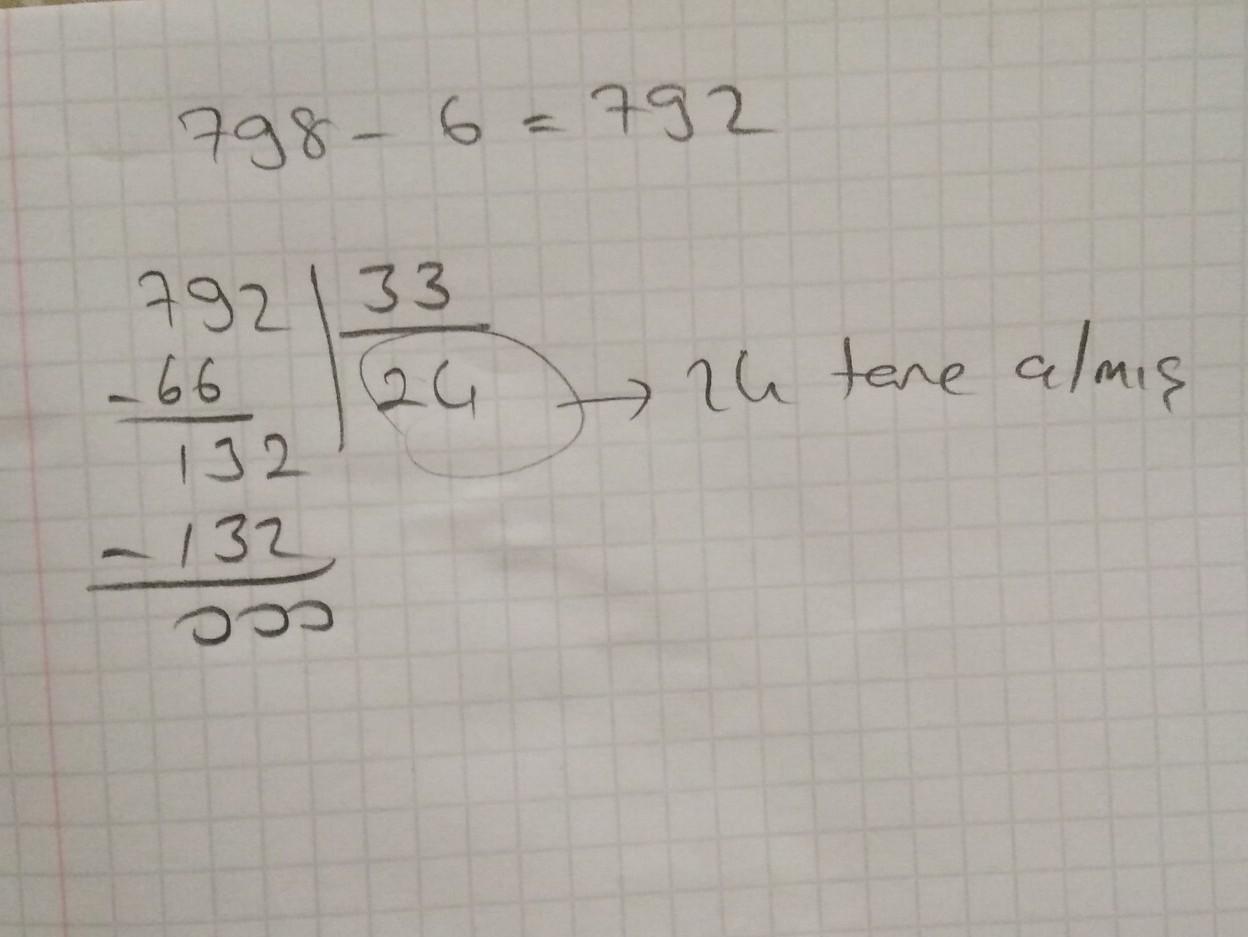 798 - 6 = 792
792 33
-66 24 → 24 tane almış
132
-132
000